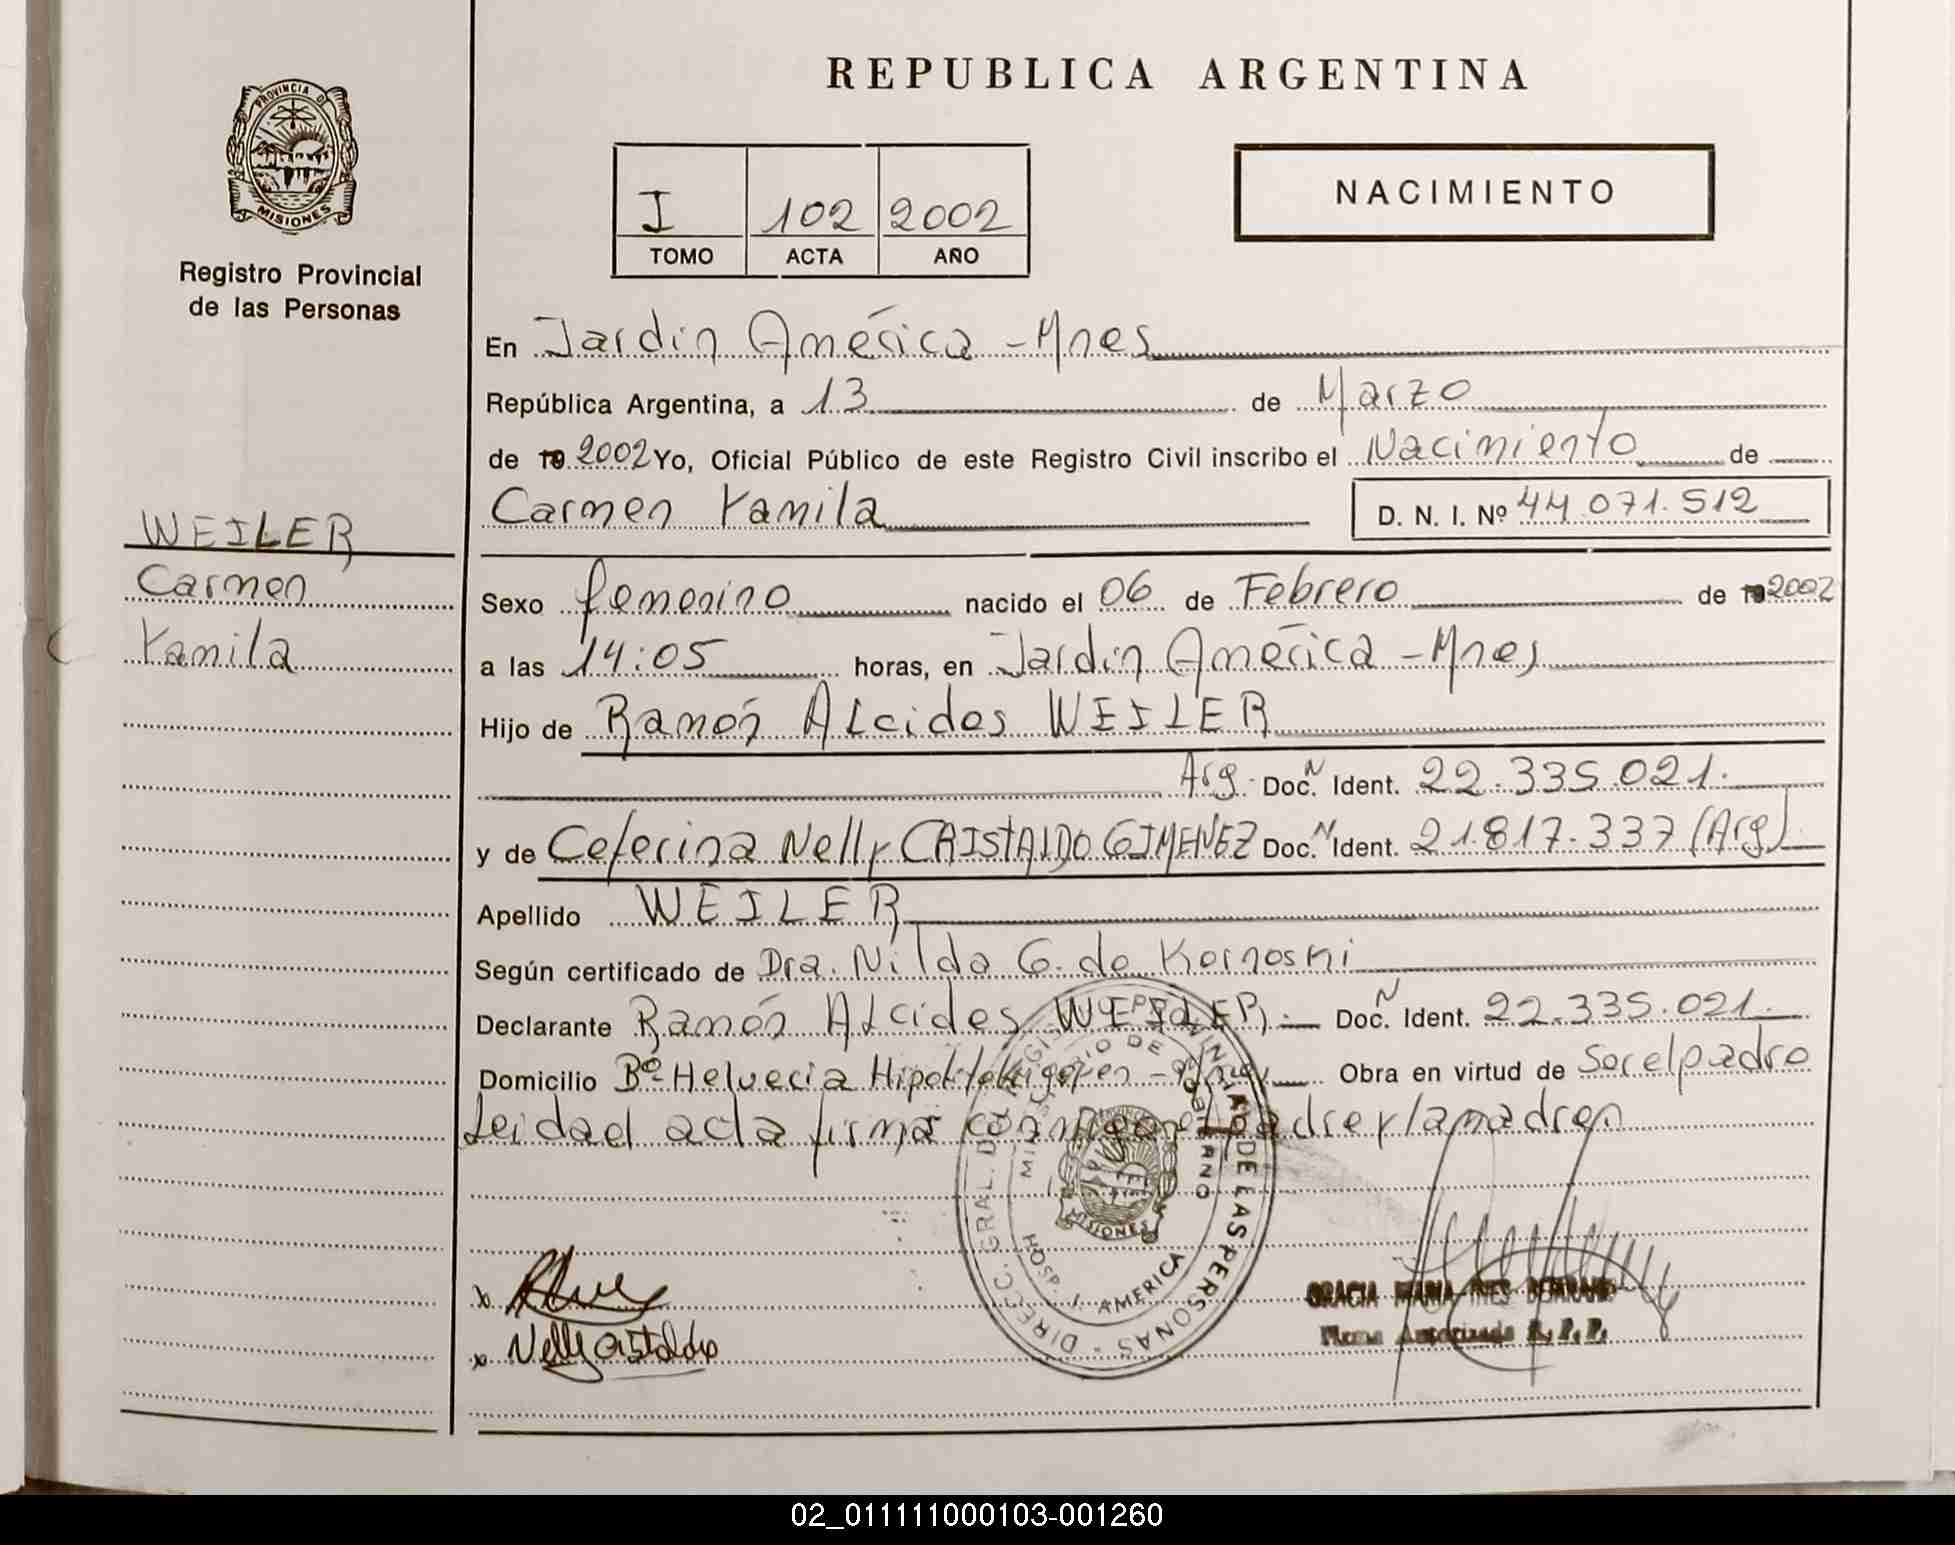 REPUBLICA ARGENTINA
PROVINCIA D
MISIONES
Registro Provincial
de las Personas
I 102 2002
TOMO ACTA AÑO
NACIMIENTO
En Jardin América - Mnes
República Argentina, a 13 de Marzo
de 19 2002 Yo, Oficial Público de este Registro Civil inscribo el Nacimiento de
Carmen Yamila
D. N. I. Nº 44.071.512
WEILER
Carmen
Yamila
Sexo femenino nacido el 06 de Febrero de 19 2002
a las 14:05 horas, en Jardin América - Mnes
Hijo de Ramón ALcides WEILER
Arg. Doc. N Ident. 22.335.021.
y de Ceferina Nelly CRISTALDO GIMENEZ Doc. N Ident. 21.817.337 (Arg)
Apellido WEILER
Según certificado de Dra. Nilda G. de Kornoski
Declarante Ramón ALcides WEILER Doc. N Ident. 22.335.021.
Domicilio Bº Helvecia Hipolito Yrigoyen - Obra en virtud de Ser el padre
Leidad acta firma conmigo el padre y la madre
DIRECC. GRAL. DEL REGISTRO PROVINCIAL DE LAS PERSONAS
MINISTERIO DE GOBIERNO
MISIONES
HOSP. J. AMERICA
Nelly Cristaldo
GRACIA MARIA INES
Firma Autorizada R. P. P.
02_011111000103-001260